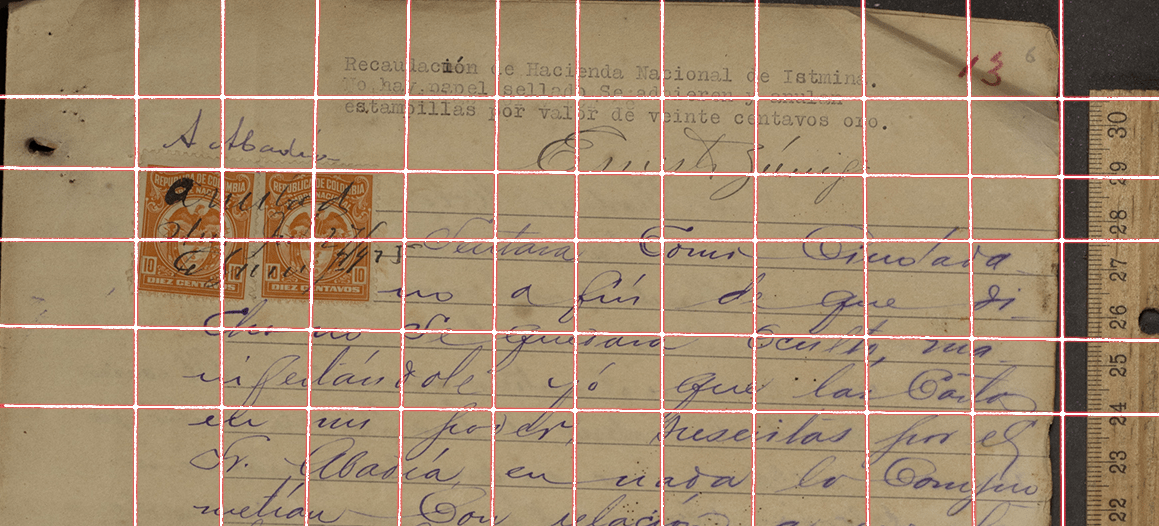 13 6
Recaudación de Hacienda Nacional de Istmina.
No hay papel sellado Se adhieren y anulan
estampillas por valor de veinte centavos oro.
A. Abadía
Ernest Zúñiga
REPUBLICA DE COLOMBIA REPUBLICA DE COLOMBIA
10 10 10
DIEZ CENTAVOS DIEZ CENTAVOS
Sentara Como Ciudada
no a fin de que di
cho no Se quedara Oculto, ma
nifestándole yó que las Cartas
en mi poder, suscritas por el
Sr. Abadía, en nada lo Compro
metían Con relación
30
29
28
27
26
25
24
23
22